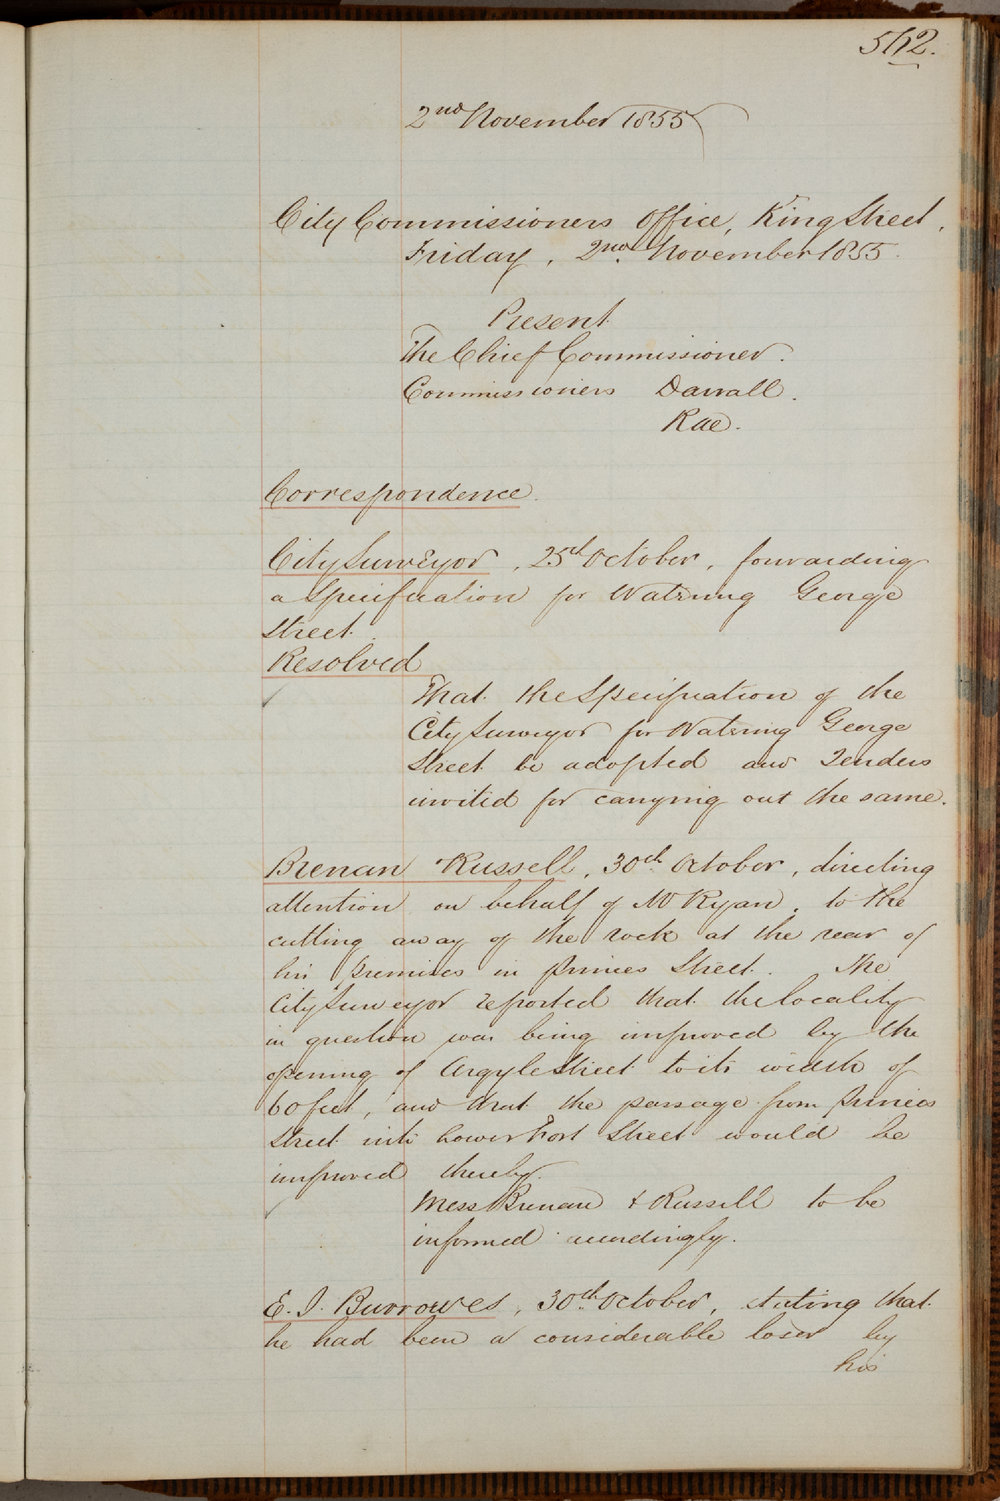 562.
2nd November 1855
City Commissioners Office, King Street,
Friday, 2nd November 1855.
Present
The Chief Commissioner.
Commissioners Darvall.
Rae.
Correspondence.
City Surveyor, 25th October, forwarding
a Specification for Watering George
Street.
Resolved
That the Specification of the
City Surveyor for Watering George
Street be adopted and Tenders
invited for carrying out the same.
Brenan Russell, 30th October, directing
attention on behalf of Mr Ryan, to the
cutting away of the rock at the rear of
his premises in Princes Street. The
City Surveyor reported that the locality
in question was being improved by the
opening of Argyle Street to its width of
60 feet, and that the passage from Princes
Street into Lower Fort Street would be
improved thereby.
Mess Brenan & Russell to be
informed accordingly.
E. J. Burrowes, 30th October, stating that
he had been a considerable loser by
his